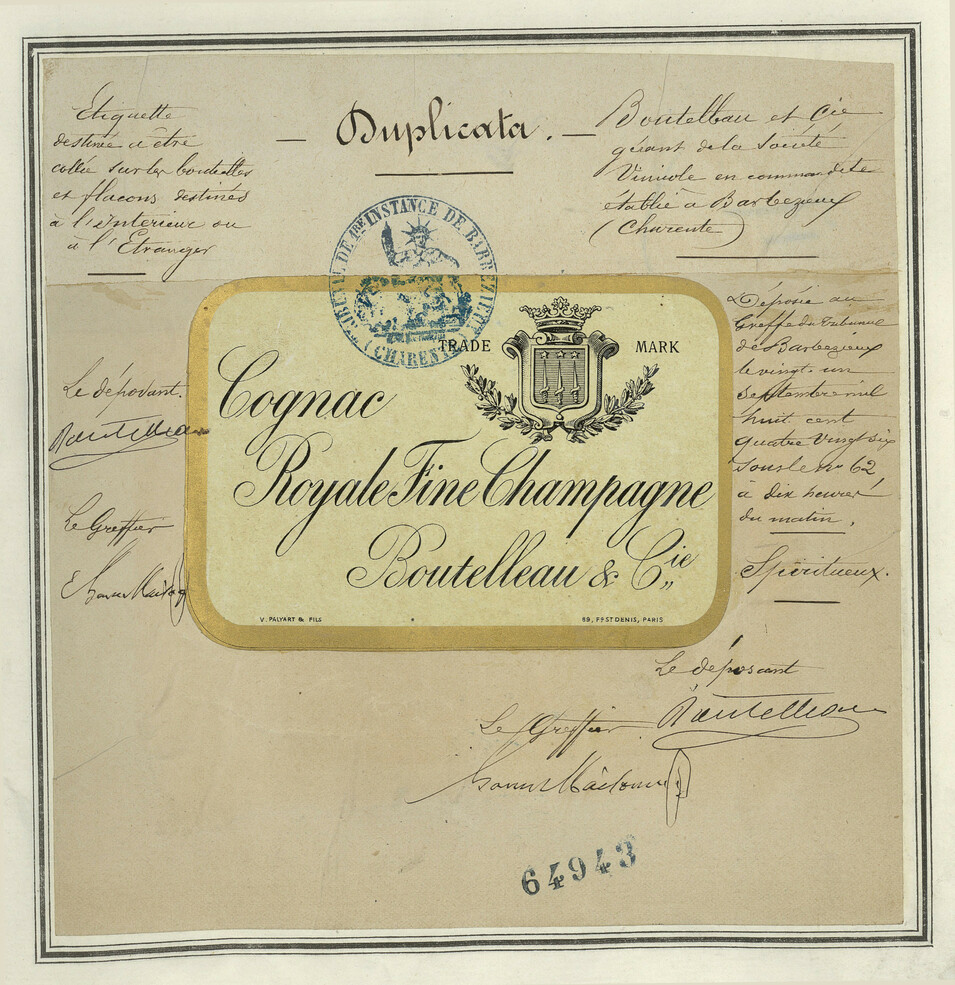 Duplicata.
Etiquette
destinée à être
collée sur les bouteilles
et flacons destinés
à l'Intérieur ou
à l'Etranger
Boutelleau et Cie
gérant de la Société
Vinicole en commandite
établie à Barbezieux
(Charente)
TRIBUNAL DE 1ère INSTANCE DE BARBEZIEUX
(CHARENTE)
Le déposant.
Boutelleau
Le Greffier
TRADE MARK
Cognac
Royale Fine Champagne
Boutelleau & Cie
V. PALYART & FILS
89, FG ST DENIS, PARIS
Déposée au
Greffe du Tribunal
de Barbezieux
le vingt un
Septembre mil
huit cent
quatre Vingt six
sous le no 62
à dix heures
du matin,
Spiritueux.
Le déposant
Boutelleau
Le Greffier
64943